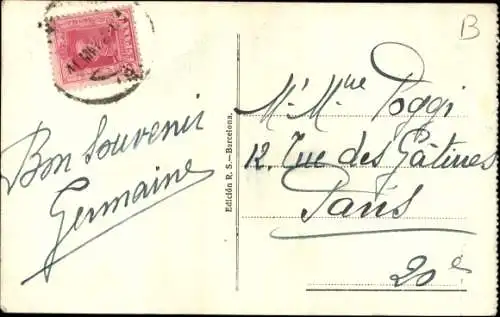 B
Bon Souvenir
Germaine
Edición R. S.—Barcelona.
Mr Mme Poggi
12, Rue des Gâtines
Paris
20e